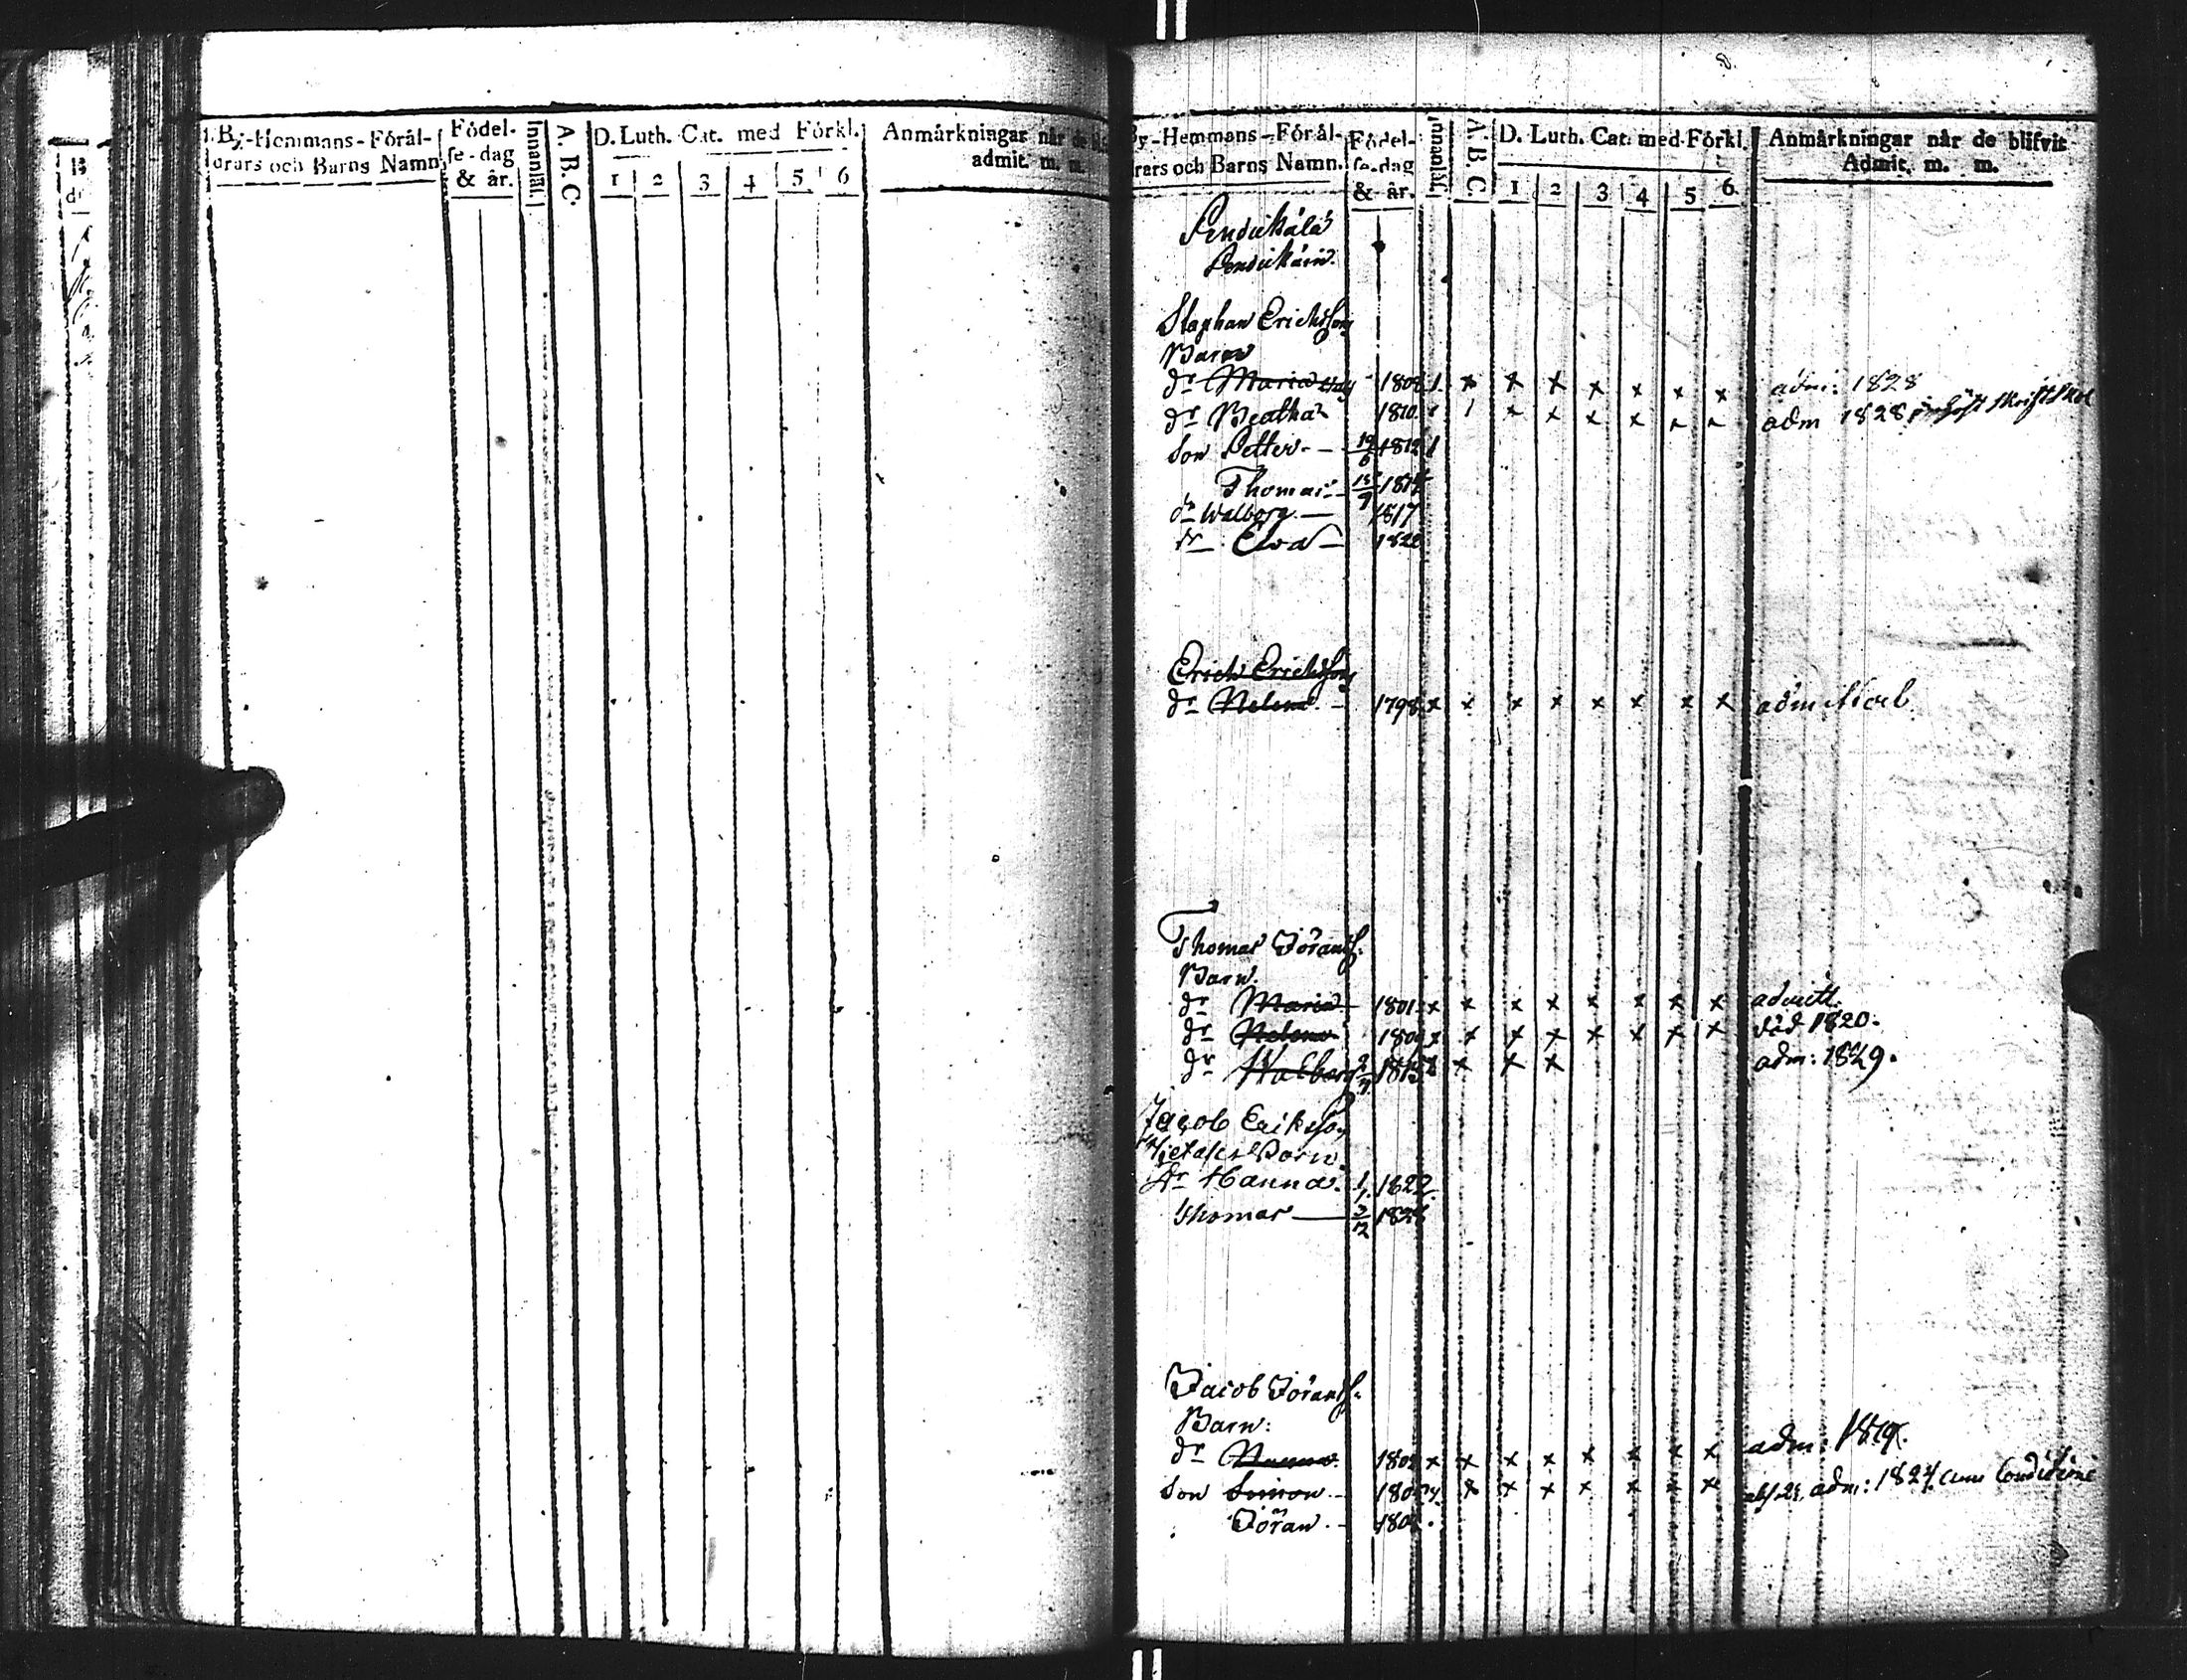 By-Hemmans-Förål-
drars och Barns Namn.
Födel-
se-dag
& år.
Innanläs.
A. B. C.
D. Luth. Cat. med Förkl.
1 2 3 4 5 6
Anmärkningar när de
admit. m. m.
8.
By-Hemmans-Förål-
drars och Barns Namn.
Födel-
se-dag
& år.
Innanläs.
A. B. C.
D. Luth. Cat. med Förkl.
1 2 3 4 5 6
Anmärkningar när de blifvit
Admit. m. m.
Pendikälä
Pendikäin
Staphan Erichsson
Barn
dr Maria 1808 1 x x x x x x x adm: 1828
dr Beatha 1810 1 x x x x x x adm 1828 skriftskol
Son Petter 19/6 1812 1
Thomas 15/9 1814
dr Walborg 1817
dr Eva 1820
Erich Erichsson
dr Helena 1798 x x x x x x x x adm
Thomas Jöransson
Barn.
dr Maria 1801 x x x x x x x x admitt.
dr Helena 1804 x x x x x x x x död 1820.
dr Walborg 2/7 1813 x x x x adm: 1829.
Jacob Eriksson
Barn
dr Hanna 1/1 1822
Thomas 3/12 1824
Jacob Jöransson
Barn:
dr Hanna 180 x x x x x x x x adm: 1819.
Son Simon 180 x x x x x x x adm: 1824 cum Conditione
Jöran 180